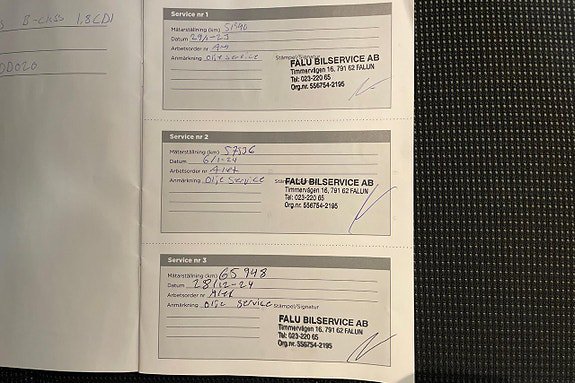 B-class 1,8 CDI
Service nr 1
Mätarställning (km)
Datum 29/1-23
Arbetsorder nr
Anmärkning Olje Service Stämpel/Signatur
FALU BILSERVICE AB
Timmervägen 16, 791 62 FALUN
Tel: 023-220 65
Org.nr. 556754-2195
Service nr 2
Mätarställning (km) 57536
Datum 6/1-24
Arbetsorder nr Alex
Anmärkning Olje Service
FALU BILSERVICE AB
Timmervägen 16, 791 62 FALUN
Tel: 023-220 65
Org.nr. 556754-2195
Service nr 3
Mätarställning (km) 65 948
Datum 28/12-24
Arbetsorder nr Alex
Anmärkning Olje Service Stämpel/Signatur
FALU BILSERVICE AB
Timmervägen 16, 791 62 FALUN
Tel: 023-220 65
Org.nr. 556754-2195